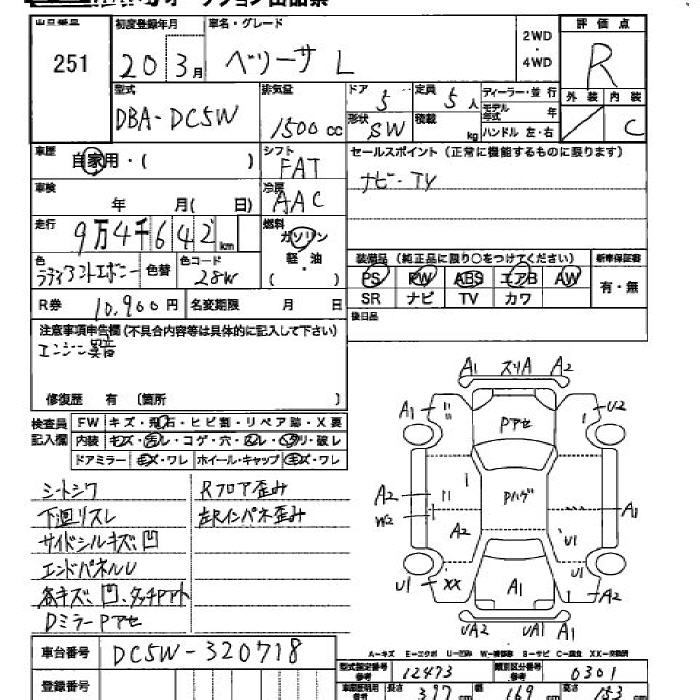 出品番号 251
初度登録年月 20 3月
車名・グレード ベリーサ L
2WD・4WD
評価点 R
型式 DBA-DC5W
排気量 1500 cc
ドア 5
定員 5人
ディーラー・並行
モデル年式 年
形状 SW
積載 kg
ハンドル 左・右
外装 / 内装 C
車歴 自家用・( )
シフト FAT
セールスポイント (正常に機能するものに限ります)
ナビ・TV
車検 年 月( 日)
冷房 AAC
走行 9万4千642 km
燃料 ガソリン
軽・油
( )
色 ラディアントエボニー 色替
色コード 28W
装備品 (純正品に限り○をつけてください)
新車保証書
PS PW ABS エアB AW
有・無
SR ナビ TV カワ
R券 10,900円 名変期限 月 日
後日品
注意事項申告欄 (不具合内容等は具体的に記入して下さい)
エンジン異音
修復歴 有 〔箇所 〕
検査員記入欄
FW キズ・飛石・ヒビ割・リペア跡・X要
内装 キズ・汚レ・コゲ・穴・スレ・ヘタリ・破レ
ドアミラー キズ・ワレ ホイール・キャップ キズ・ワレ
シートシワ
下廻リスレ
サイドシルキズ、凹
エンドパネルU
各キズ、凹、タッチアト
DミラーPアセ
Rフロア歪み
左Rインパネ歪み
A1 スリA A2
A1 U2
Pアセ
Pハゲ
A2
W2
A2
A1
U1
U1 XX
A1
U1
A2
UA2 UA1 A1
A-キズ E-エクボ U-凹み W-補修跡 S-サビ C-腐食 XX-交換済
車台番号 DC5W-320718
型式指定番号 参考 12473
類別区分番号 参考 0301
登録番号
車検証明用 参考 長さ 377 cm 幅 169 cm 高さ 153 cm